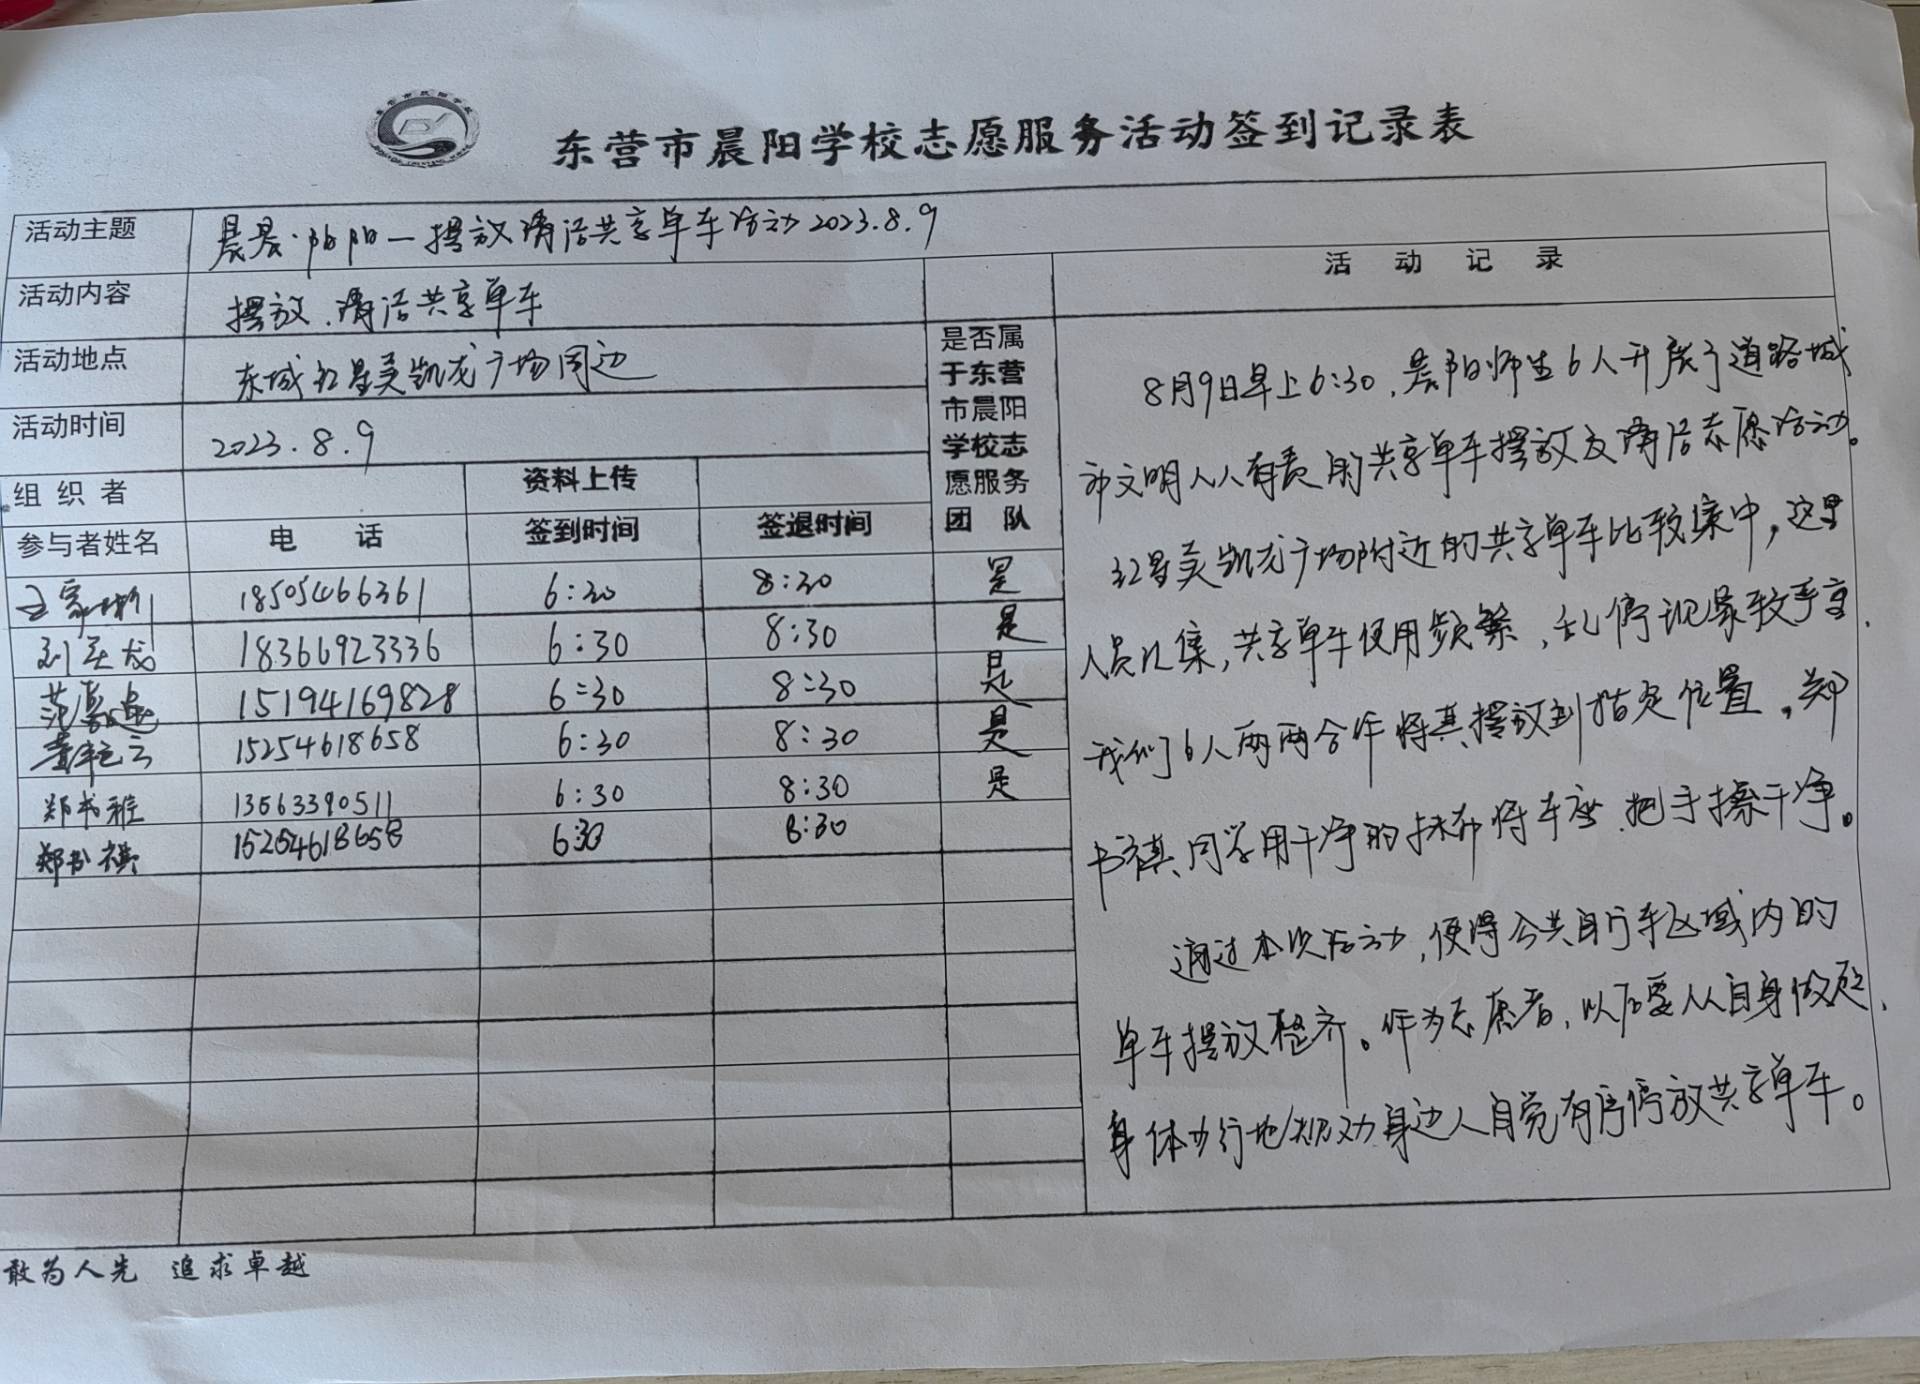 东营市晨阳学校志愿服务活动签到记录表
活动主题 晨晨·阳阳—摆放清洁共享单车活动2023.8.9
活动内容 摆放、清洁共享单车
活动地点 东城红星美凯龙广场周边
活动时间 2023.8.9
组织者 资料上传
参与者姓名 电话 签到时间 签退时间
是否属
于东营
市晨阳
学校志
愿服务
团队
18505466361 6:30 8:30 是
18366923336 6:30 8:30 是
15194169828 6:30 8:30 是
15254618658 6:30 8:30 是
郑书雅 13563390511 6:30 8:30 是
郑书祺 15254618658 6:30 8:30
活动记录
8月9日早上6:30,晨阳师生6人开展了道路城
市文明人人有责的共享单车摆放及清洁志愿活动。
红星美凯龙广场附近的共享单车比较集中,这里
人员汇集,共享单车使用频繁,乱停现象较严重,
我们6人两两合作将其摆放到指定位置,郑
书祺同学用干净的抹布将车座、把手擦干净。
通过本次活动,使得公共自行车区域内的
单车摆放整齐。作为志愿者,以后要从自身做起,
身体力行地规劝身边人自觉有序停放共享单车。
敢为人先 追求卓越